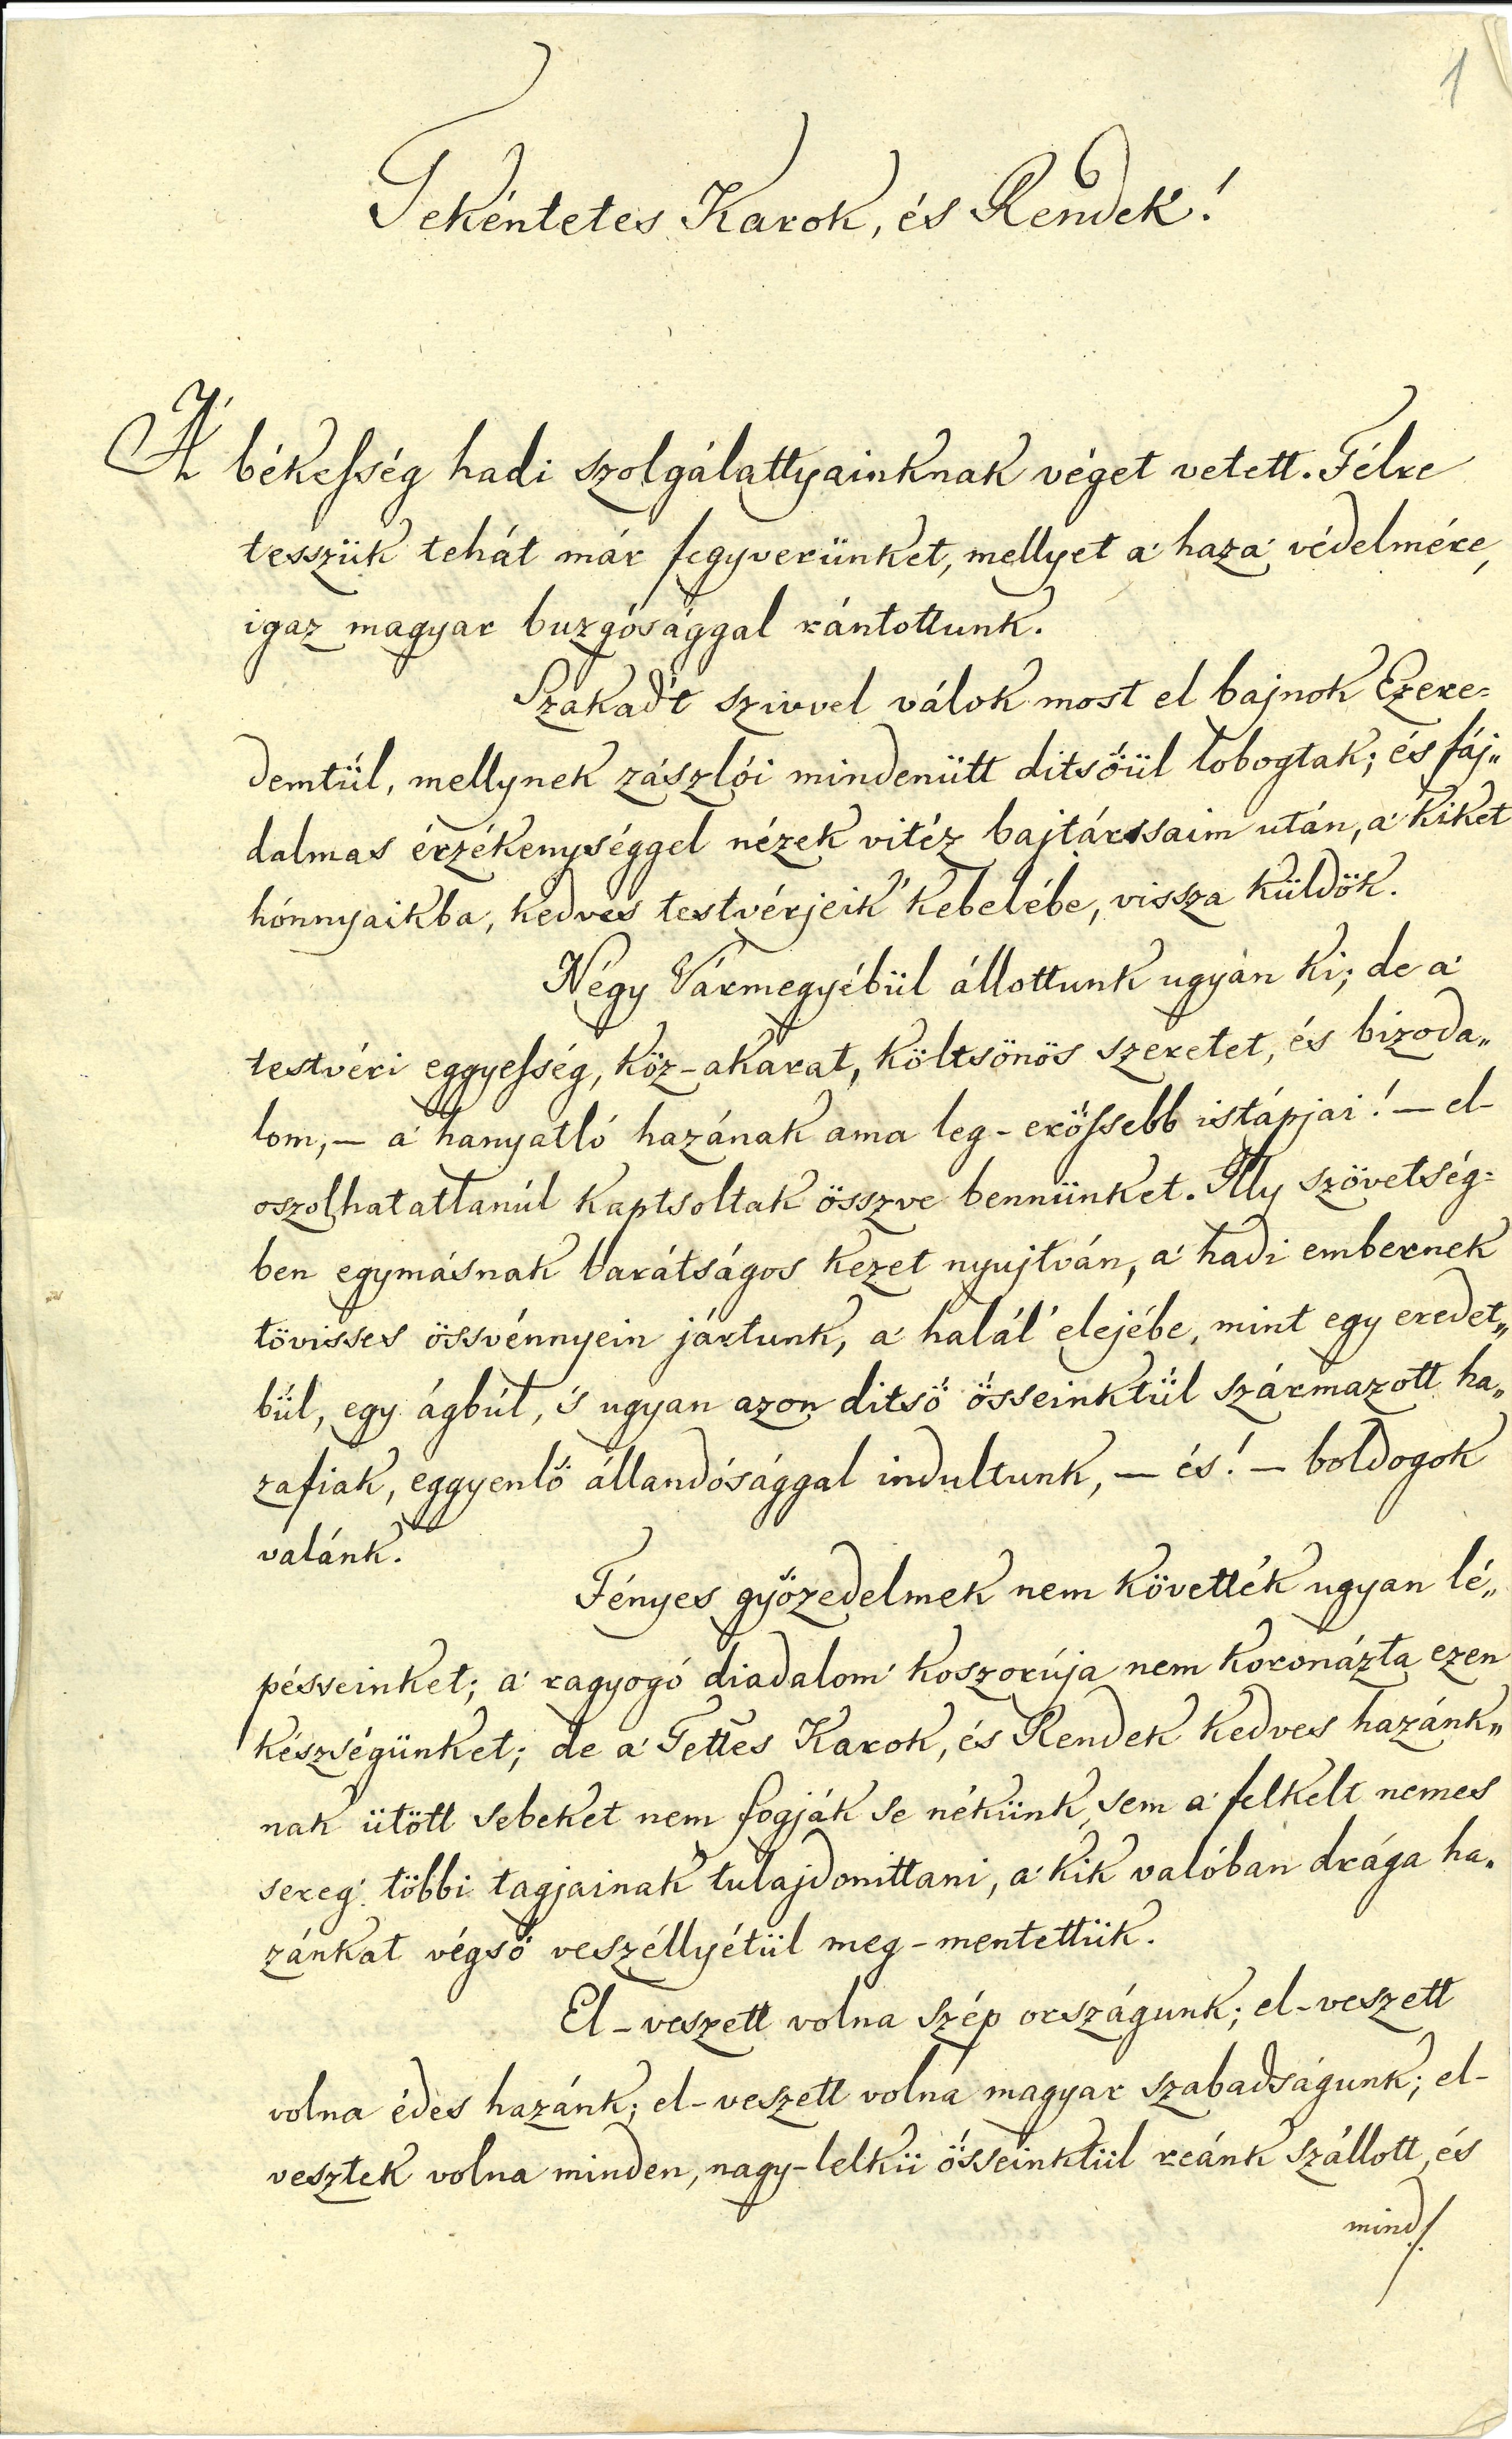 1
Tekéntetes Karok, és Rendek!
A' békesség hadi szolgálattyainknak véget vetett. Félre
tesszük tehát már fegyverünket, mellyet a' haza' védelmére,
igaz magyar buzgósággal rántottunk.
Szakadt szivvel válok most el bajnok Ezere=
demtül, mellynek zászlói mindenütt ditsőül lobogtak; és fáj„
dalmas érzékenységgel nézek vitéz bajtárssaim után, a' kiket
hónnyaikba, kedves testvérjeik' kebelébe, vissza küldök.
Négy Vármegyébül állottunk ugyan ki; de a'
testvéri eggyesség, köz-akarat, költsönös szeretet, és bizoda„
lom, – a' hanyatló hazának ama leg-erőssebb istápjai! – el-
oszolhatatlanúl kaptsoltak öszve bennünket. Illy szövetség=
ben egymásnak barátságos kezet nyujtván, a' hadi embernek
tövisses össvénnyein jártunk, a' halál' elejébe, mint egy eredet„
bűl, egy ágbúl, 's ugyan azon ditső össeinktűl származott ha„
zafiak, eggyenlő állandósággal indultunk, – és! – boldogok
valánk.
Fényes győzedelmek nem követték ugyan lé„
pésseinket; a' ragyogó diadalom' koszorúja nem koronázta ezen
készségünket; de a' Tettes Karok, és Rendek kedves hazánk„
nak ütött sebeket nem fogják se nékünk, sem a' felkelt nemes
sereg' többi tagjainak tulajdonittani, a' kik valóban drága ha„
zánkat végső veszéllyétül meg-mentettük.
El-veszett volna szép országunk; el-veszett
volna édes hazánk; el-veszett volna magyar szabadságunk; el-
vesztek volna minden, nagy-lelkü össeinktül reánk szállott, és
mind/.